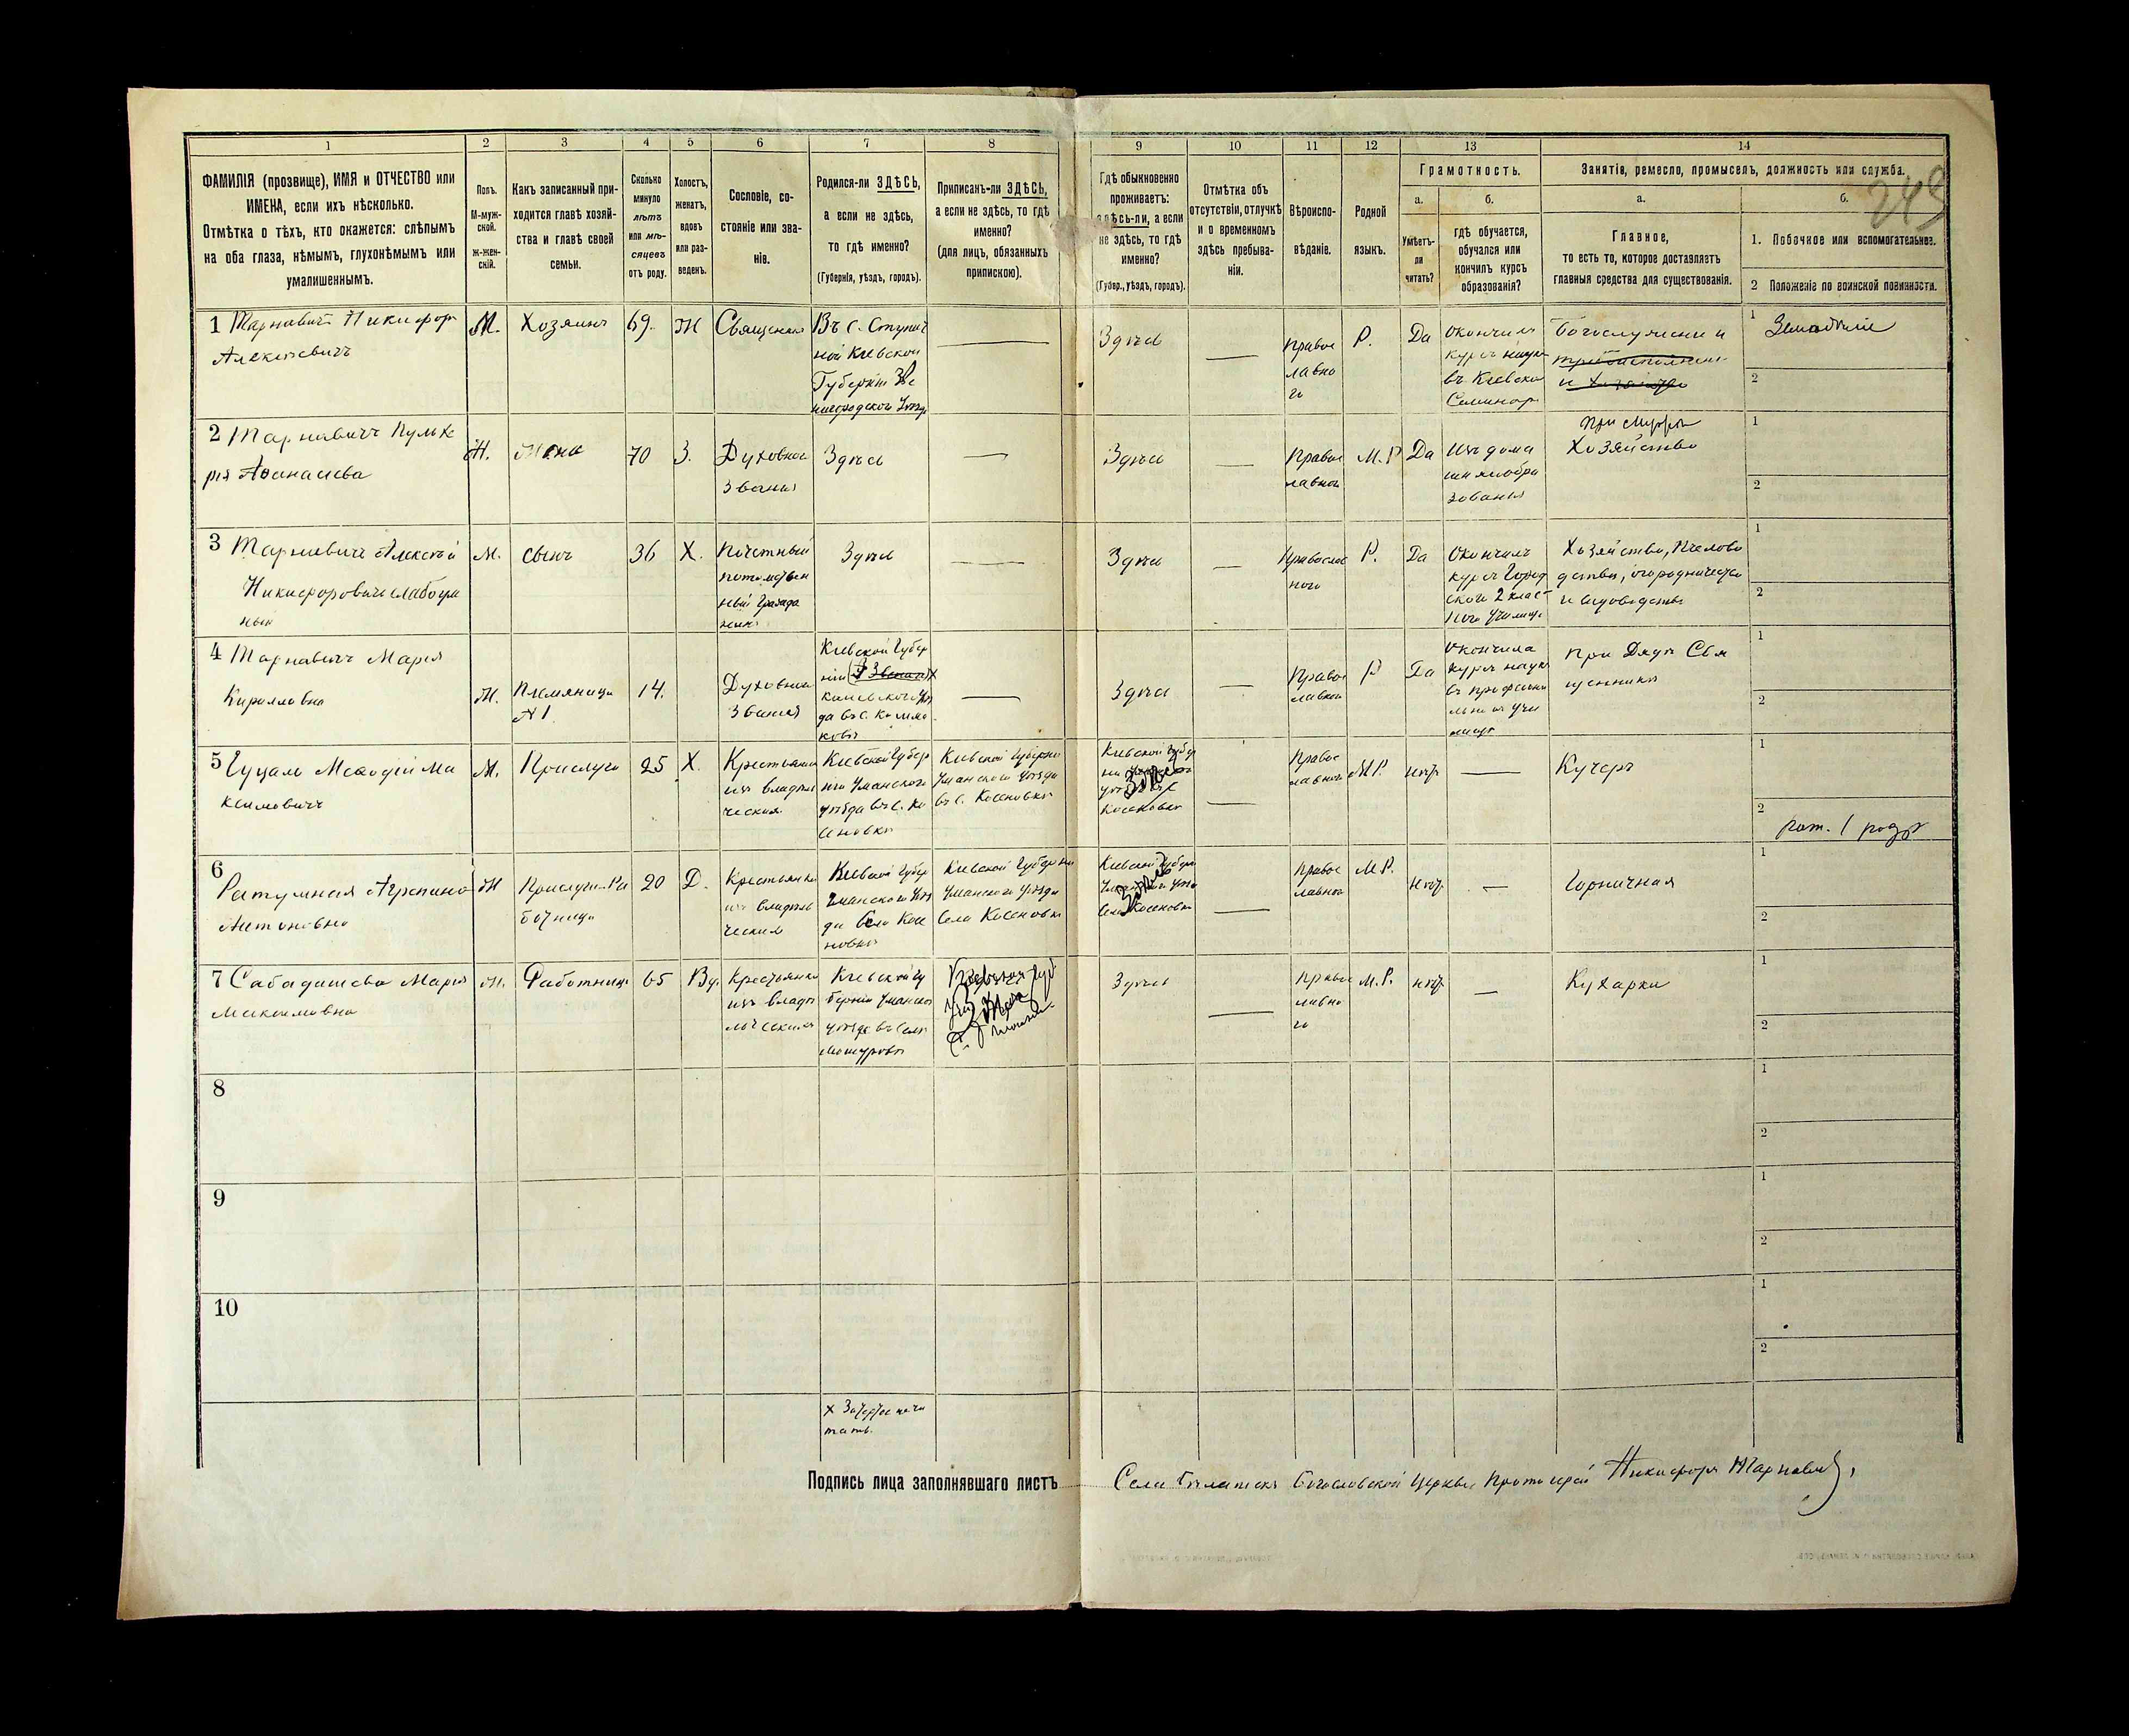 1
2
3
4
5
6
7
8
9
10
11
12
13
14
ФАМИЛІЯ (прозвище), ИМЯ и ОТЧЕСТВО или
ИМЕНА, если ихъ нѣсколько.
Отмѣтка о тѣхъ, кто окажется: слѣпымъ
на оба глаза, нѣмымъ, глухонѣмымъ или
умалишеннымъ.
Полъ.
М-муж-
ской.
Ж-жен-
скій.
Какъ записанный при-
ходится главѣ хозяй-
ства и главѣ своей
семьи.
Сколько
минуло
лѣтъ
или мѣ-
сяцевъ
отъ роду.
Холостъ,
женатъ,
вдовъ
или раз-
веденъ.
Сословіе, со-
стояніе или зва-
ніе.
Родился-ли ЗДѢСЬ,
а если не здѣсь,
то гдѣ именно?
(Губернія, уѣздъ, городъ).
Приписанъ-ли ЗДѢСЬ,
а если не здѣсь, то гдѣ
именно?
(для лицъ, обязанныхъ
припискою).
Гдѣ обыкновенно
проживаетъ:
здѣсь-ли, а если
не здѣсь, то гдѣ
именно?
(Губер., уѣздъ, городъ).
Отмѣтка объ
отсутствіи, отлучкѣ
и о временномъ
здѣсь пребыва-
ніи.
Вѣроиспо-
вѣданіе.
Родной
языкъ.
Грамотность.
а.
Умѣетъ-
ли
читать?
б.
гдѣ обучается,
обучался или
кончилъ курсъ
образованія?
Занятія, ремесло, промыселъ, должность или служба.
а.
Главное,
то есть то, которое доставляетъ
главныя средства для существованія.
б.
1. Побочное или вспомогательное.
2 Положеніе по воинской повинности.
249
1 Тарнавичъ Никифор
Алексѣевичъ
М.
Хозяинъ
69.
Ж
Священник
Въ с. Ступич
ной Кіевской
Губерніи Зве
нигородскаго Уѣзда
Здѣсь
Правос
лавна
го
Р.
Да
Окончилъ
курсъ наукъ
въ Кіевской
Семинар
Богослуженіе и
Земледѣліе
1
2
2 Тарнавичъ Пульхе
рія Аѳанасіева
Ж.
Жена
70
З.
Духовнаго
Званія
Здѣсь
Здѣсь
Правос
лавной
М.Р
Да
Изъ дома
образованія
Хозяйство
1
2
3 Тарнавичъ Алексѣй
Никифоровичъ слабоум
ный
М.
сынъ
36
Х.
Почетный
потомствен
ный Гражда
нинъ
Здѣсь
Здѣсь
Православ
наго
Р.
Да
Окончилъ
курсъ Город
ского 2 клас
наго Училища
Хозяйство, Пчелово
дство, огородничество
и садоводство
1
2
4 Тарнавичъ Марія
Кирилловна
Ж.
Племянница
№ 1
14.
Духовнаго
Званія
Кіевской Губер
ніи
Каневскаго Уѣз
да въ с.
Здѣсь
Правос
лавной
Р
Да
Окончила
курсъ наукъ
При Дядѣ Свя
щеннике
1
2
5 Гуцалъ Меѳодій Ма
ксимовичъ
М.
Прислуга
25
Х.
Крестьянинъ
изъ владѣль
ческихъ
Кіевской Губер
ніи Уманского
уѣзда въ с. Ко
сеновки
Кіевской Губерніи
Уманского Уѣзда
въ с. Косеновки
Кіевской Губер
Здѣсь
Косеновки
Правос
лавной
М.Р.
нѣтъ
Кучеръ
1
2
рат. 1 разр
6
Ратушная Агрепина
Антоновна
Ж
Прислуга Ра
ботница
20
Д.
Крестьянка
изъ владѣль
ческих
Кіевской Губер
Уманскаго Уѣз
да Село Косе
новки
Кіевской Губерніи
Уманского Уѣзда
Села Косеновки
Кіевской Губерн
Здѣсь
Села Косеновки
Правос
лавной
М.Р.
нѣтъ
Горничная
1
2
7 Сабадашева Марія
Максимовна
Ж.
Работница
65
Вд.
Крестьянка
изъ владѣ
льческихъ
Кіевской Гу
берніи Уманского
уѣзда въ Селѣ
Здѣсь
Здѣсь
Правос
лавна
го
М.Р.
нѣтъ
Кухарка
1
2
8
1
2
9
1
2
10
1
2
Подпись лица заполнявшаго листъ
Села Богословской Церкви Протоіерей Никифоръ Тарнавичъ